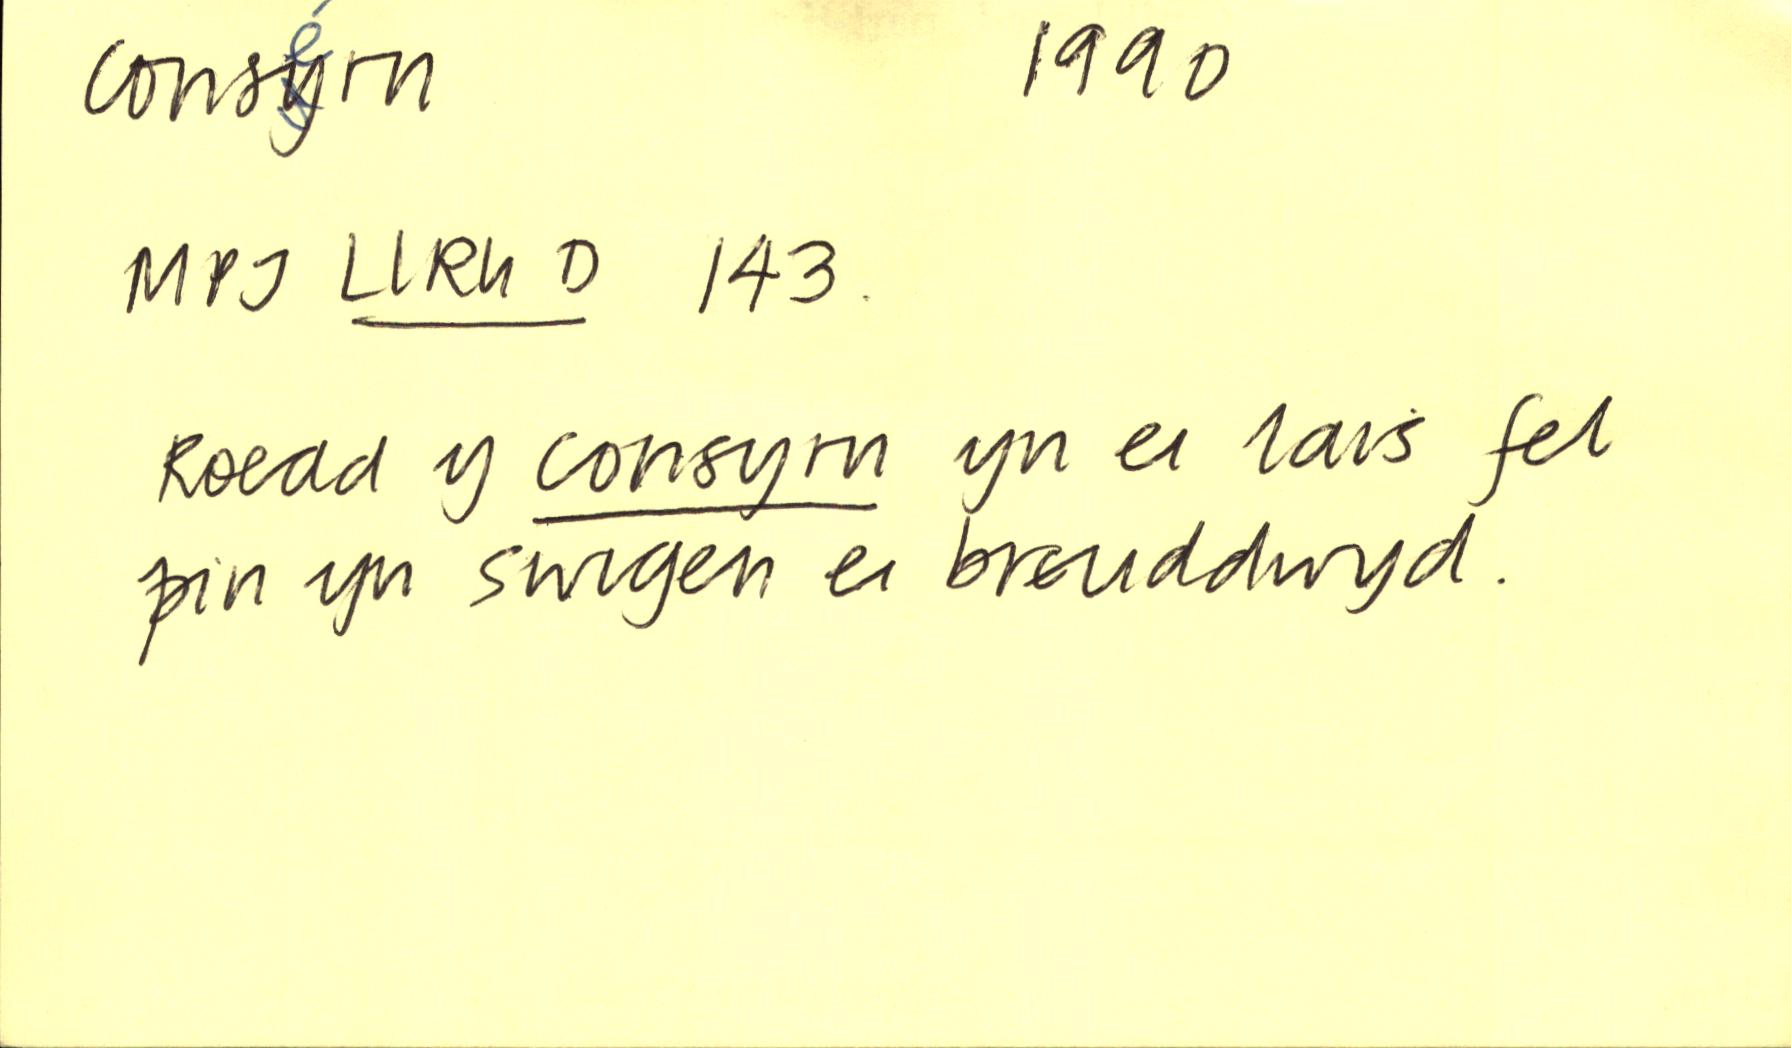 consérn 1990
MPJ LlRh D 143.
Roedd y consyrn yn ei lais fel
pin yn swigen ei breuddwyd.